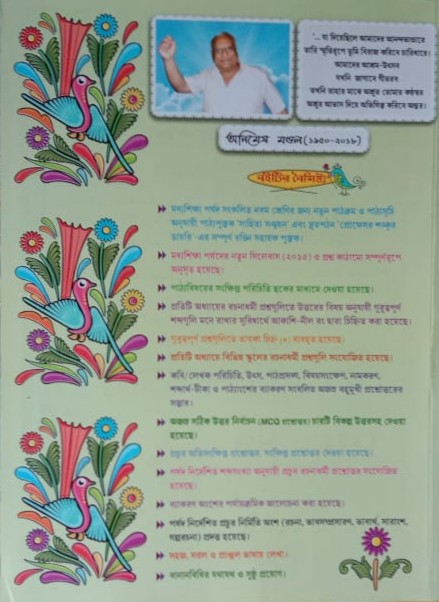 '... যা দিয়েছিলে আমাদের আনন্দভান্ডারে
তারি স্মৃতিরূপে তুমি বিরাজ করিবে চারিধারে।
আমাদের আশ্রম-উৎসব
যখনি জাগাবে গীতরব
তখনি তাহার মাঝে অশ্রুত তোমার কণ্ঠস্বর
অশ্রুর আভাস দিয়ে অভিষিক্ত করিবে অন্তর।
অনিমেষ মণ্ডল (১৯৫০-২০১৮)
বইটির বৈশিষ্ট্য
মধ্যশিক্ষা পর্ষদ সংকলিত নবম শ্রেণির জন্য নতুন পাঠক্রম ও পাঠ্যসূচি
অনুযায়ী পাঠ্যপুস্তক 'সাহিত্য সঞ্চয়ন' এবং দ্রুতপঠন 'প্রোফেসর শঙ্কুর
ডায়রি'-এর সম্পূর্ণ রঙিন সহায়ক পুস্তক।
মধ্যশিক্ষা পর্ষদের নতুন সিলেবাস (২০১৫) ও প্রশ্ন কাঠামো সম্পূর্ণরূপে
অনুসৃত হয়েছে।
পাঠ্যবিষয়ের সংক্ষিপ্ত পরিচিতি ছকের মাধ্যমে দেওয়া হয়েছে।
প্রতিটি অধ্যায়ের রচনাধর্মী প্রশ্নগুলিতে উত্তরের বিষয় অনুযায়ী গুরুত্বপূর্ণ
শব্দগুলি মনে রাখার সুবিধার্থে আকাশি-নীল রং দ্বারা চিহ্নিত করা হয়েছে।
গুরুত্বপূর্ণ প্রশ্নগুলিতে তারকা চিহ্ন (*) ব্যবহৃত হয়েছে।
প্রতিটি অধ্যায়ে বিভিন্ন স্কুলের রচনাধর্মী প্রশ্নগুলি সংযোজিত হয়েছে।
কবি/লেখক পরিচিতি, উৎস, পাঠপ্রসঙ্গ, বিষয়সংক্ষেপ, নামকরণ,
শব্দার্থ-টীকা ও পাঠ্যাংশের ব্যাকরণ সংবলিত অজস্র বহুমুখী প্রশ্নোত্তরের
সম্ভার।
অজস্র সঠিক উত্তর নির্বাচন (MCQ প্রশ্নোত্তর) চারটি বিকল্প উত্তরসহ দেওয়া
হয়েছে।
প্রচুর অতিসংক্ষিপ্ত প্রশ্নোত্তর, সংক্ষিপ্ত প্রশ্নোত্তর দেওয়া হয়েছে।
পর্ষদ নির্দেশিত শব্দসংখ্যা অনুযায়ী প্রচুর রচনাধর্মী প্রশ্নোত্তর সংযোজিত
হয়েছে।
ব্যাকরণ অংশের পর্যায়ক্রমিক আলোচনা করা হয়েছে।
পর্ষদ নির্দেশিত প্রচুর নির্মিতি অংশ (রচনা, ভাবসম্প্রসারণ, ভাবার্থ, সারাংশ,
গল্পরচনা) প্রদত্ত হয়েছে।
সহজ, সরল ও প্রাঞ্জল ভাষায় লেখা।
বানানবিধির যথাযথ ও সুষ্ঠু প্রয়োগ।